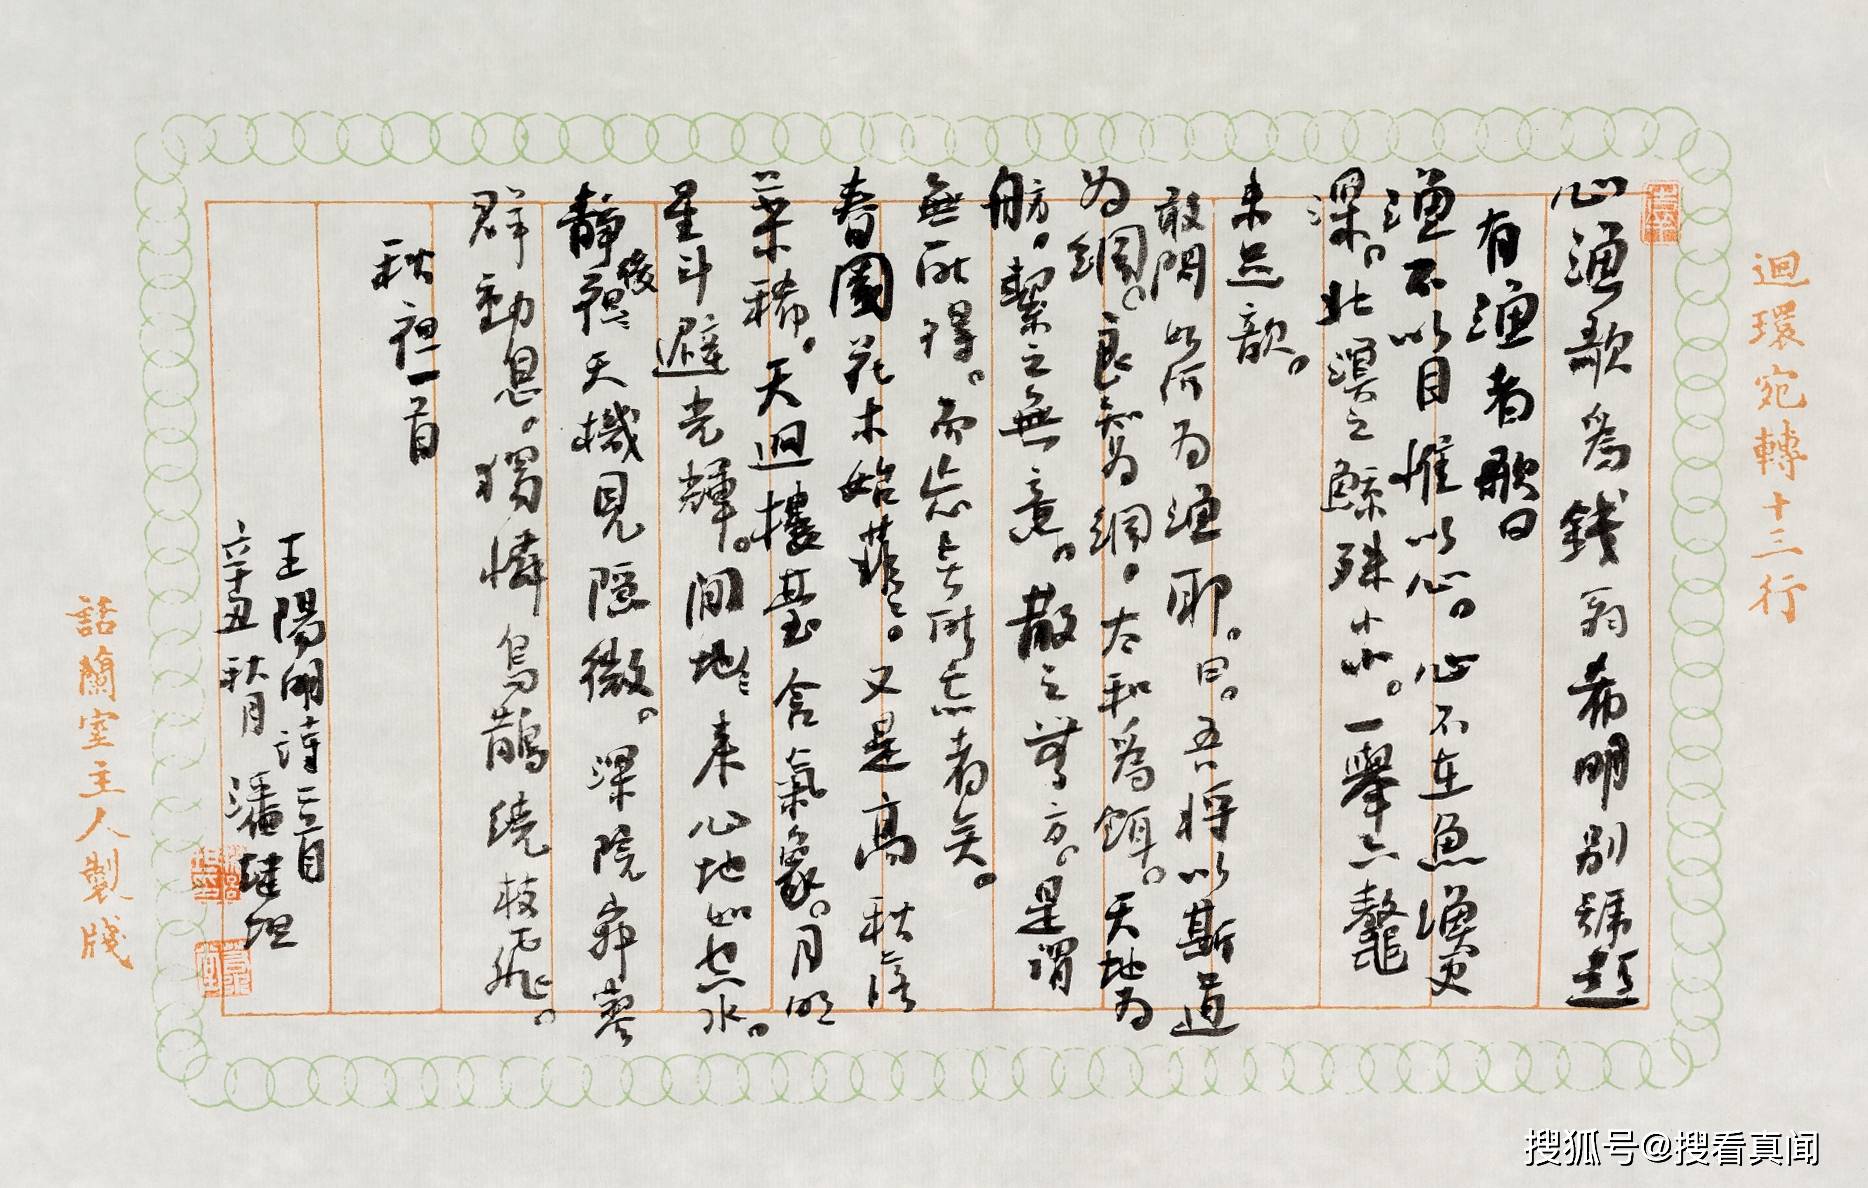 迴環宛轉十三行
心漁歌為錢翁希明別號題
有漁者歌曰
漁不以目惟以心。心不在魚漁更
深。北溟之鯨殊小小。一舉六鼇
未足歆。
敢問如何為漁耶。曰。吾將以斯道
為網。良知為綱。太和為餌。天地為
舫。絜之無意。散之無方。是謂
無所得。而忘無所忘者矣。
春園花木始菲菲。又是高秋落
葉稀。天迴樓臺含氣象。月明
星斗避光輝。閒來心地如空水。
靜後天機見隱微。深院寂寥
群動息。獨憐烏鵲繞枝飛。
秋一首
王陽明詩首
辛丑秋月 潘
話蘭室主人製牋
搜狐号@搜看真闻